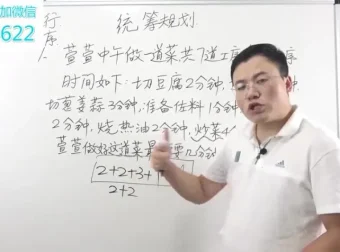 加微信
622
行
序
统筹规划
萱萱中午做一道菜共7道工
时间如下:切豆腐2分钟,
切葱姜蒜3分钟,准备佐料1分钟
2分钟,烧热油2分钟,炒菜4
萱萱做好这道菜
分钟
2+2+3+
2+2